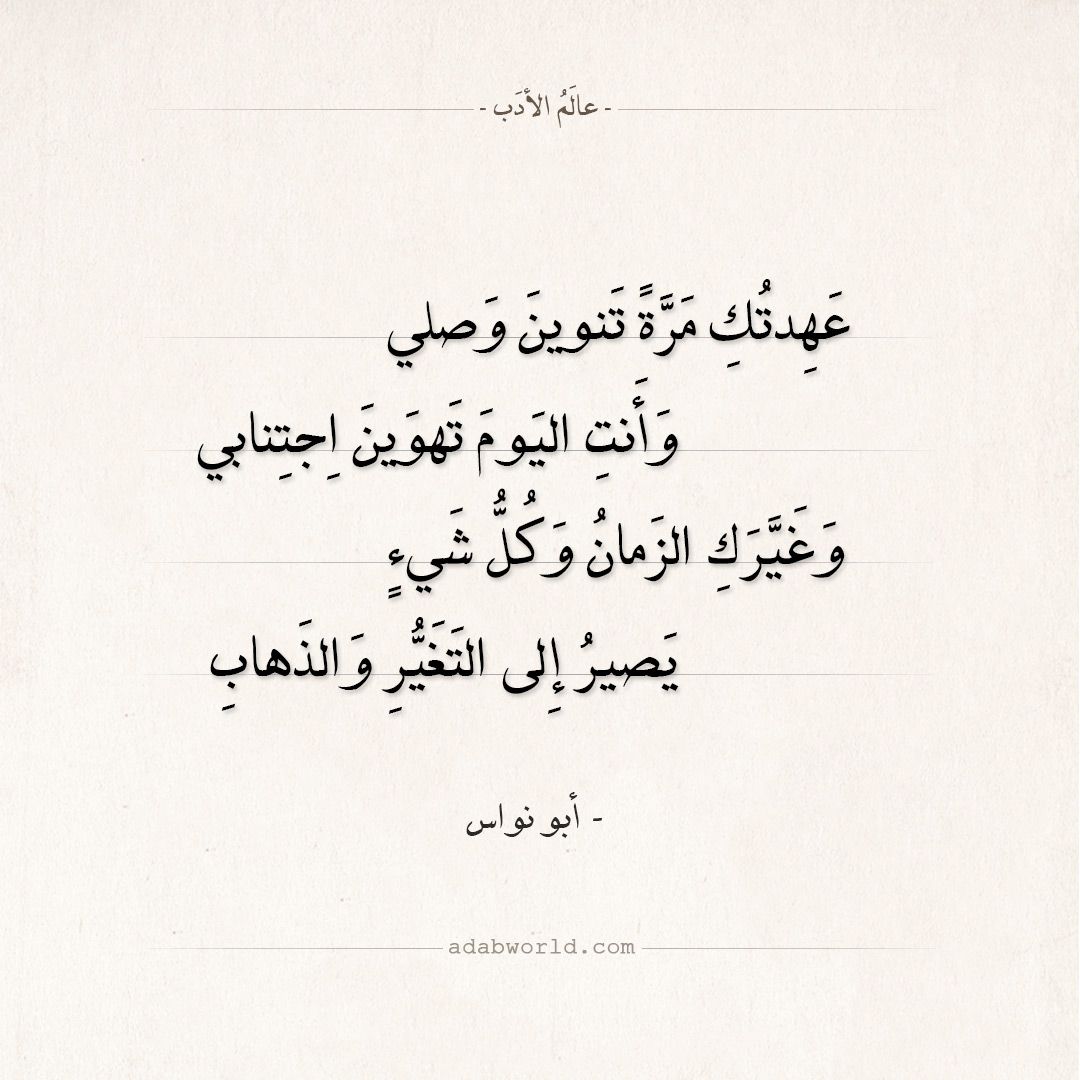 - عالَمُ الأدَب -
عَهِدتُكِ مَرَّةً تَنوينَ وَصلي
وَأَنتِ اليَومَ تَهوَينَ اِجتِنابي
وَغَيَّرَكِ الزَمانُ وَكُلُّ شَيءٍ
يَصيرُ إِلى التَغَيُّرِ وَالذَهابِ
- أبو نواس
adabworld.com